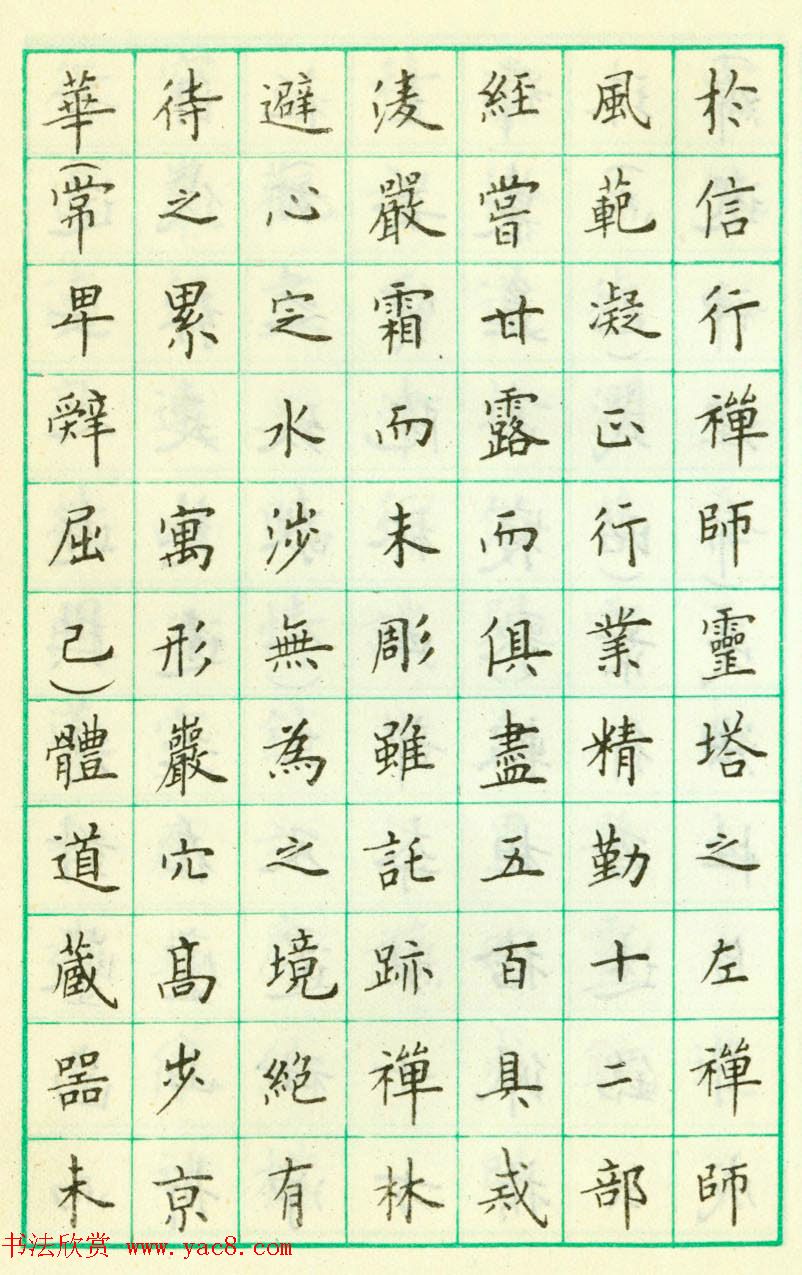 於信行禪師靈塔之左禪師
風範凝正行業精勤十二部
經嘗甘露而俱盡五百具戒
凌嚴霜而未彫雖託跡禪林
避心定水涉無為之境絕有
待之累 寓形巖穴高步京
華(常卑辭屈己)體道藏器未
书法欣赏 www.yac8.com